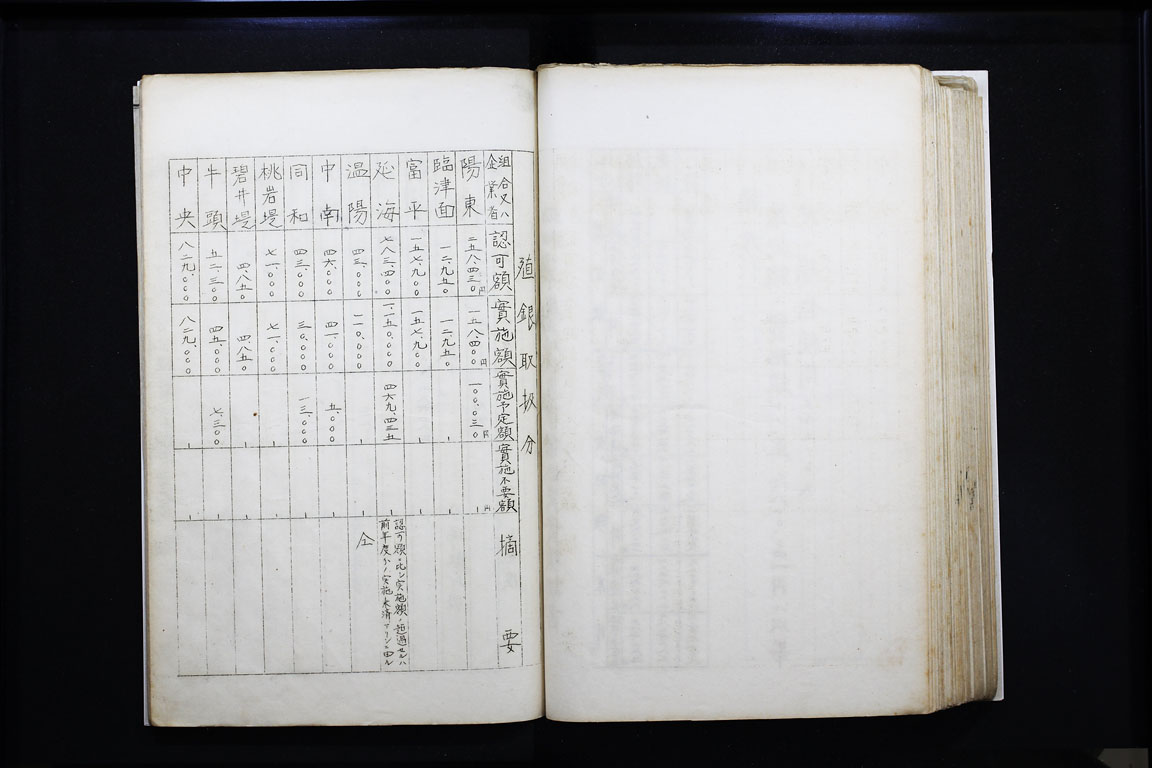 殖銀取扱分
組合又ハ企業者 認可額 實施額 實施予定額 實施不要額 摘要
陽東 二五八、四三〇円 一五八、四〇〇円 一〇〇、〇三〇円 -円
臨津面 一二、九五〇 一二、九五〇 - -
富平 一五七、九〇〇 一五七、九〇〇 - -
延海 七八三、四〇〇 一、一五〇、〇〇〇 四六九、四三五 - 認可額ニ比シ実施額ノ超過セルハ前年度分ノ実施未済アリシニ由ル
温陽 四三、〇〇〇 一一〇、〇〇〇 - - 仝
中南 四六、〇〇〇 四一、〇〇〇 五、〇〇〇 -
同和 四三、〇〇〇 三〇、〇〇〇 一三、〇〇〇 -
桃岩堤 七一、〇〇〇 七一、〇〇〇 - -
碧井堤 四、八五〇 四、八五〇 - -
牛頭 五二、三〇〇 四五、〇〇〇 七、三〇〇 -
中央 八二九、〇〇〇 八二九、〇〇〇 - -